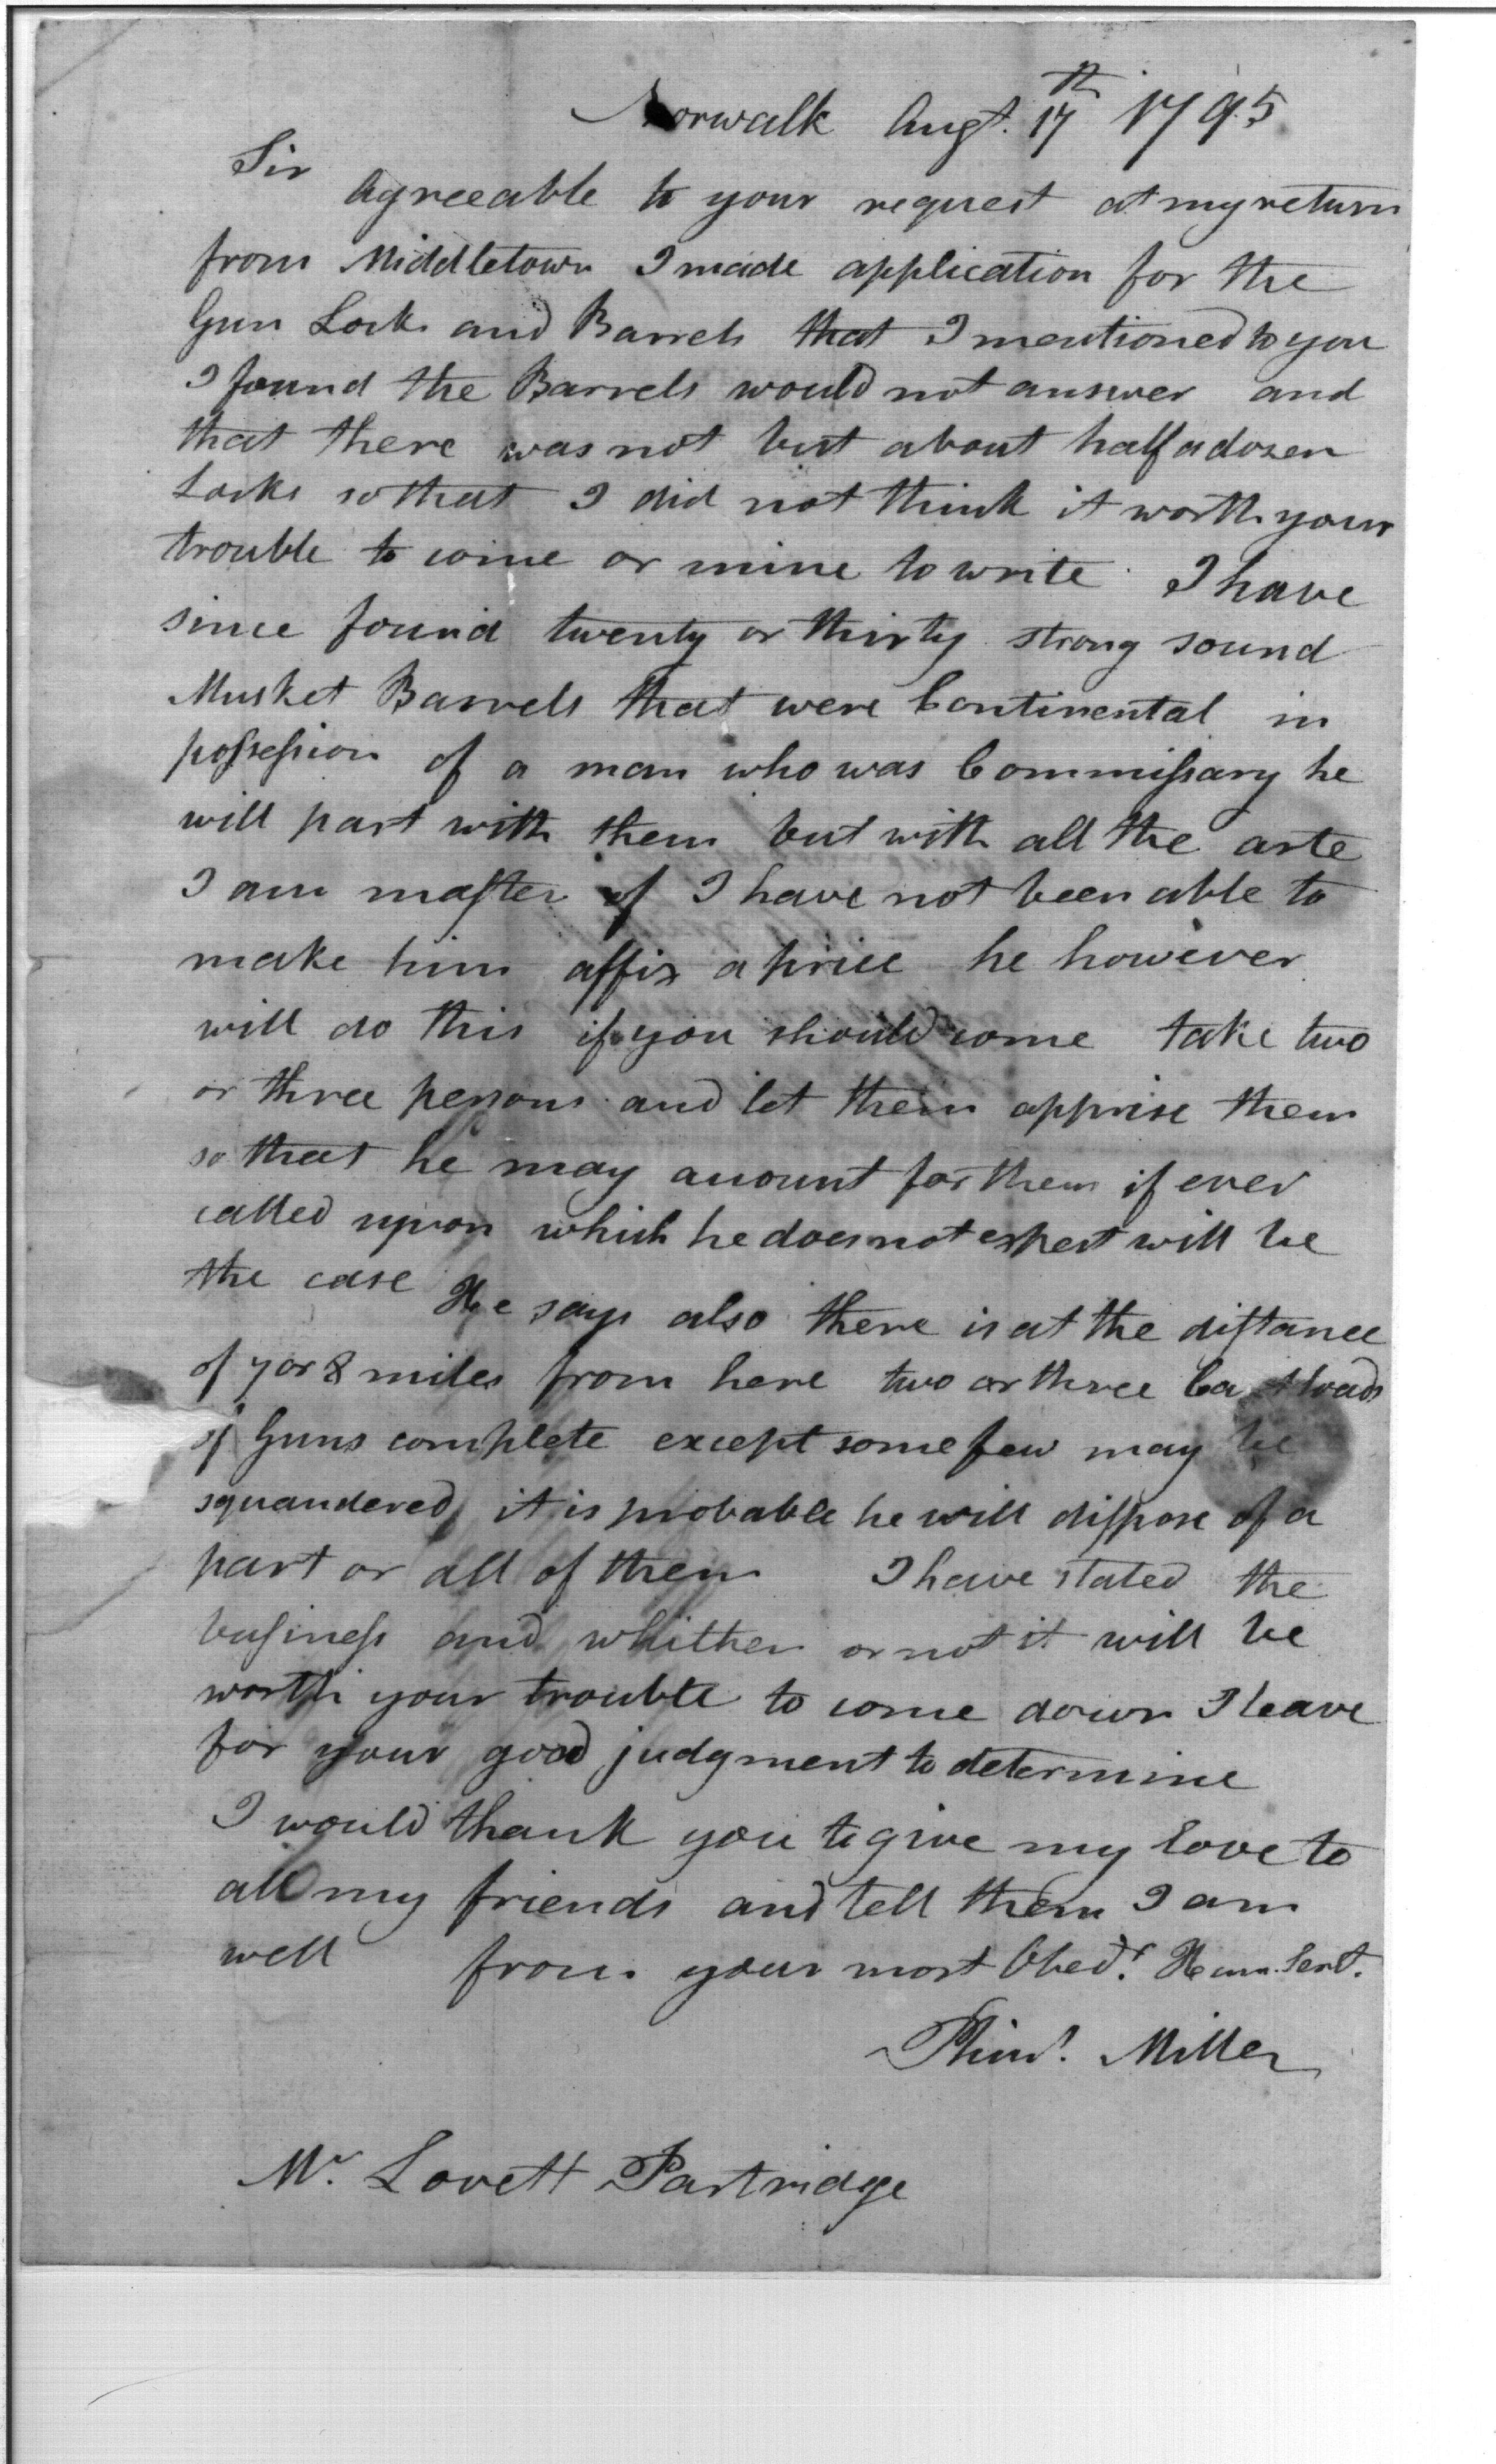 Norwalk Augt. 17th 1795
Sir
Agreeable to your request at my return
from Middletown I made application for the
Gun Locks and Barrels that I mentioned to you
I found the Barrels would not answer and
that there was not but about half a dozen
Locks so that I did not think it worth your
trouble to come or mine to write I have
since found twenty or thirty strong sound
Musket Barrels that were Continental in
possession of a man who was Commissary he
will part with them but with all the arte
I am master of I have not been able to
make him affix a price he however
will do this if you should come take two
or three persons and let them apprise them
so that he may account for them if ever
called upon which he does not expect will be
the case He says also there is at the distance
of 7 or 8 miles from here two or three Cart loads
of Guns complete except some few may be
squandered, it is probable he will dispose of a
part or all of them I have stated the
business and whither or not it will be
worth your trouble to come down I leave
for your good judgment to determine
I would thank you to give my love to
all my friends and tell them I am
well from your most Obedt. Hum. Sert.
Miller
Mr. Lovett Partridge